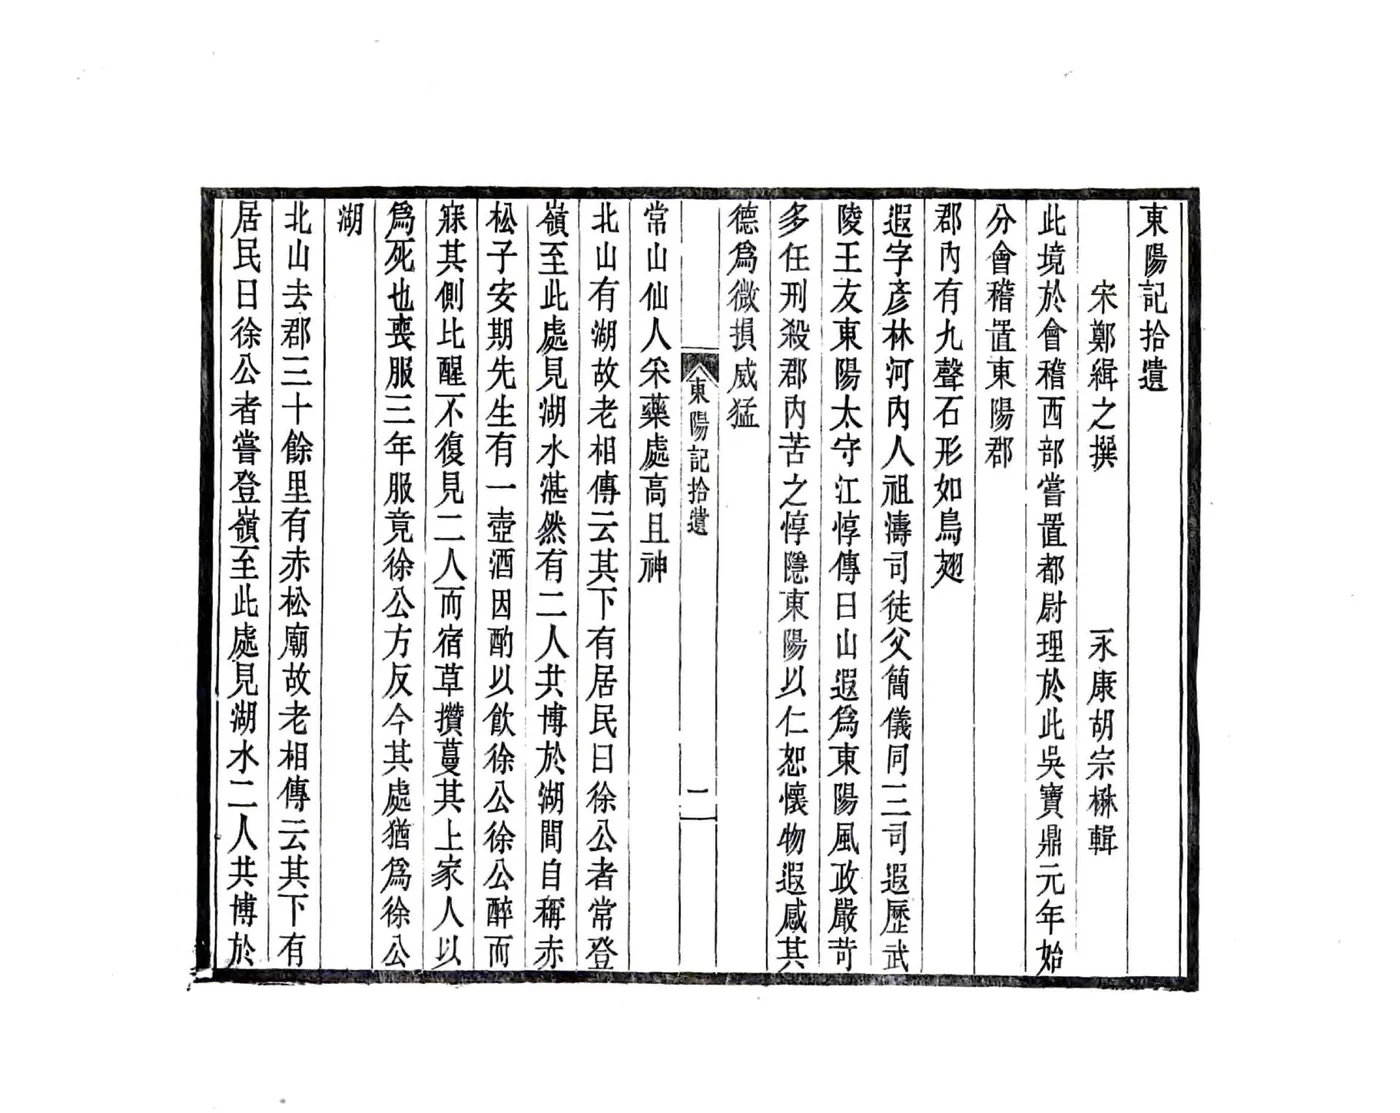 東陽記拾遺
宋鄭緝之撰　永康胡宗楙輯
此境於會稽西部嘗置都尉理於此吳寶鼎元年始
分會稽置東陽郡
郡內有九聲石形如鳥翅
遐字彥林河內人祖濤司徒父簡儀同三司遐歷武
陵王友東陽太守江惇傳曰山遐爲東陽風政嚴苛
多任刑殺郡內苦之惇隱東陽以仁恕懷物遐感其
德爲微損威猛
東陽記拾遺　二
常山仙人采藥處高且神
北山有湖故老相傳云其下有居民曰徐公者常登
嶺至此處見湖水湛然有二人共博於湖間自稱赤
松子安期先生有一壺酒因酌以飲徐公徐公醉而
寐其側比醒不復見二人而宿草攢蔓其上家人以
爲死也喪服三年服竟徐公方反今其處猶爲徐公
湖
北山去郡三十餘里有赤松廟故老相傳云其下有
居民曰徐公者嘗登嶺至此處見湖水二人共博於